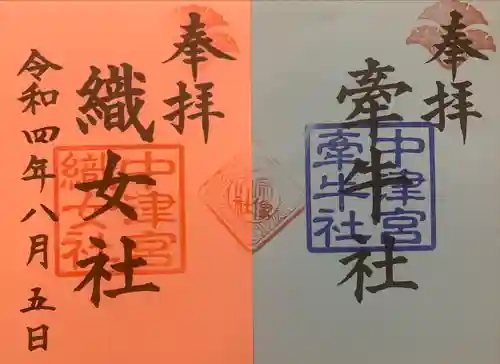 奉拝
牽牛社
中津宮
牽牛社
奉拝
織女社
中津宮
織女社
令和四年八月五日